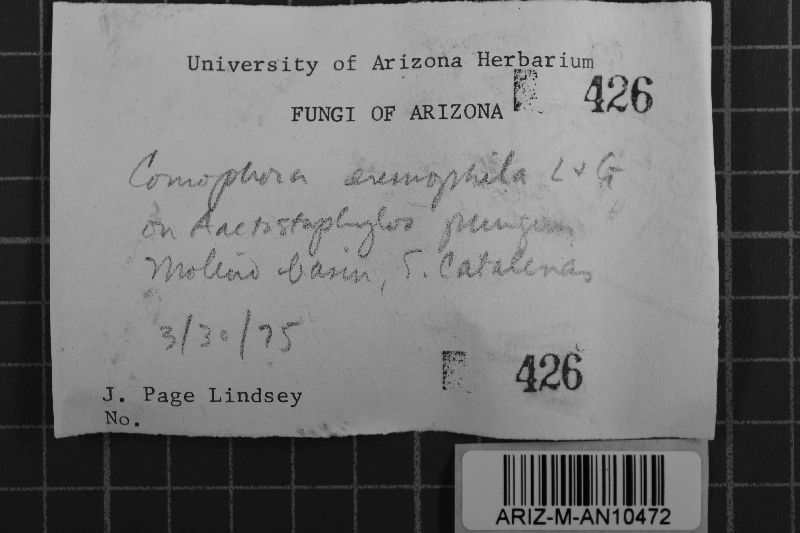 University of Arizona Herbarium
426
FUNGI OF ARIZONA
Coniophora eremophila L & G
on Arctostaphylos pungens
Molino basin, S. Catalinas
3/30/75
426
J. Page Lindsey
No.
ARIZ-M-AN10472